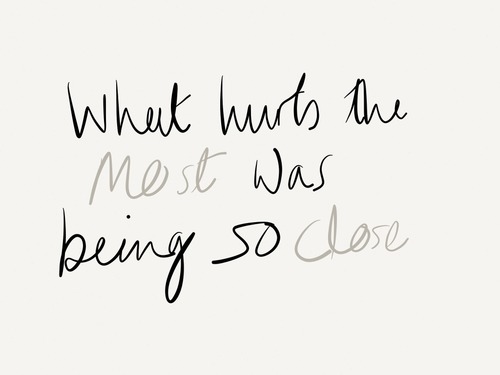 What hurts the
Most was
being so close